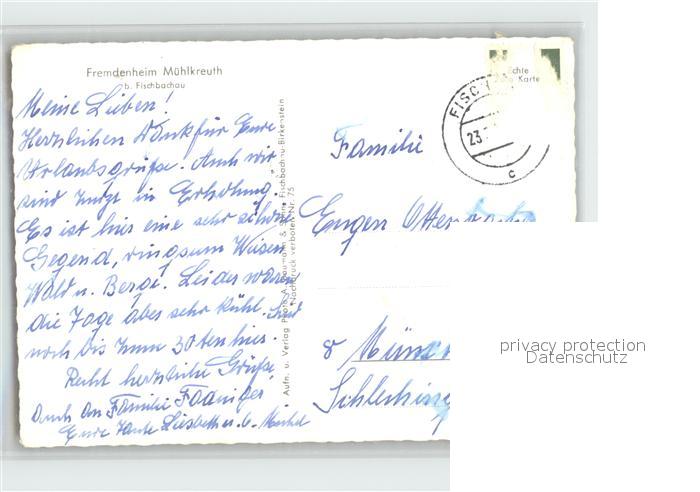 Fremdenheim Mühlkreuth
b. Fischbachau
Meine Lieben!
Herzlichen Dank für Eure
Urlaubsgrüße. Auch wir
sind jetzt in Erholung.
Es ist hier eine sehr schöne
Gegend, ringsum Wiesen
Wald u. Berge. Leider waren
die Tage aber sehr kühl. Sind
noch bis zum 30ten hier.
Recht herzliche Grüße
Auch an Familie
Eure Tante Liesbeth
Aufn. u. Verlag Photo A. Baumann & Fischbachau-Birkenstein
Nachdruck verboten Nr. 75
Echte
Karte
FISCH
23.
c
Familie
Eugen
8 Münc
privacy protection
Datenschutz